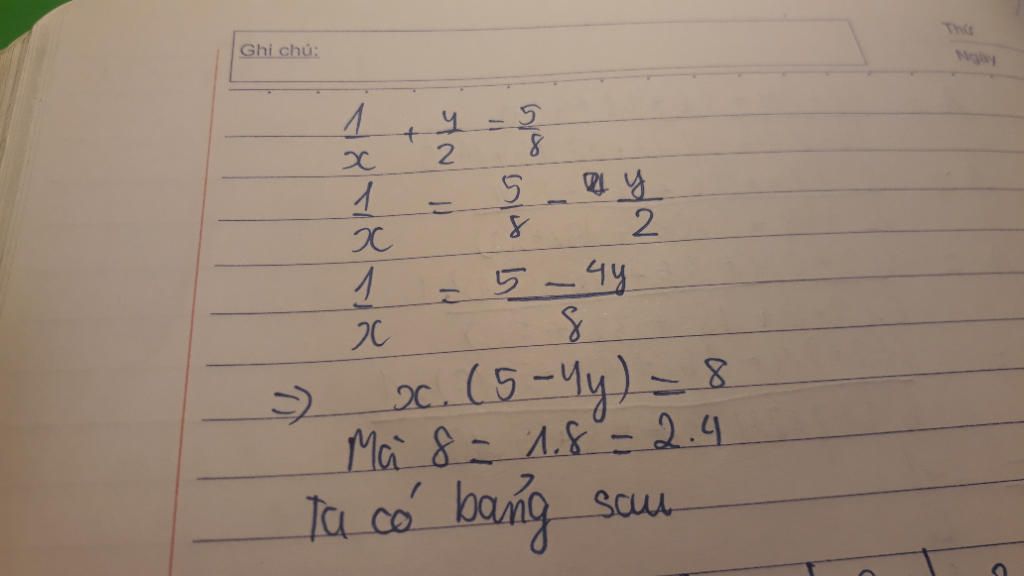 Ghi chú:
Thứ
Ngày
1/x + y/2 = 5/8
1/x = 5/8 - y/2
1/x = 5 - 4y/8
=> x.(5-4y) = 8
Mà 8 = 1.8 = 2.4
Ta có bảng sau